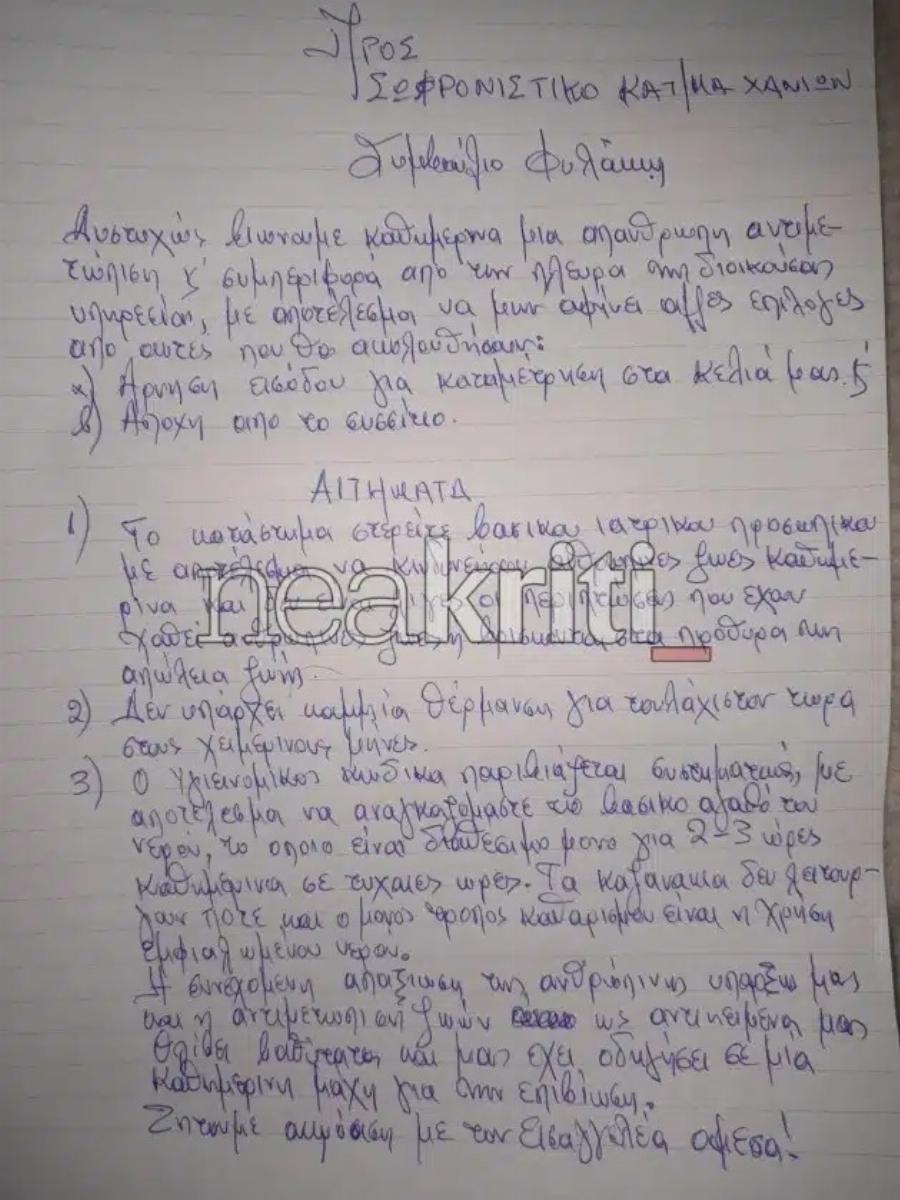 Προς
ΣΩΦΡΟΝΙΣΤΙΚΟ ΚΑΤ/ΜΑ ΧΑΝΙΩΝ
Συμβούλιο Φυλάκης
Δυστυχώς βιώνουμε καθημερινα μια απανθρωπη αντιμε-
τώπιση ς' συμπεριφορά από την πλευρα της διοικούσας
υπηρεσίας, με αποτέλεσμα να μην αφήνει αλλες επιλογες
απο αυτες που θα ακολουθήσουν:
α) Αρνηση εισόδου για καταμέτρηση στα κελιά μας ς'
β) Αποχη απο το συσσίτιο.
ΑΙΤΗΜΑΤΑ
1) Το κατάστημα στερείτε βασικου ιατρικου προσωπικου
με αποτέλεσμα να κινδυνεύουν ανθρωπινες ζωες καθημε-
ρινα και δεν ειναι λιγες οι περιπτωσεις που εχουν
χαθεί στα πρόθυρα της
απώλεια ζωής.
2) Δεν υπάρχει καμμία θέρμανση για τουλάχιστον τωρα
στους χειμερινους μηνες.
3) Ο Υγιενομικος κωδικα παραβιάζεται συστηματικώς, με
αποτέλεσμα να αναγκαζομαστε το βασικο αγαθό του
νερού, το οποιο είναι διαθέσιμο μονο για 2-3 ώρες
καθημερινα σε τυχαιες ωρες. Τα καζανακια δεν λειτουρ-
γουν ποτε και ο μονος τροπος καθαρισμου είναι η χρήση
εμφιαλωμενου νερου.
Η συνεχομενη απαξιωση της ανθρώπινης υπαρξης μας
και η αντιμετωπιση ζωών ως αντικειμενα μας
θλίβει βαθύτατα και μας εχει οδηγήσει σε μία
καθημερινη μαχη για την επιβίωση.
Ζητουμε ακρόαση με τον Εισαγγελέα αμεσα!
neakriti